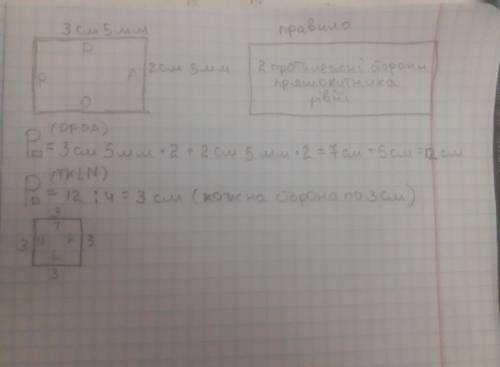 3 см 5 мм
правило
D
P
A
O
2 см 5 мм
2 протилежні сторони
прямокутника
рівні
P (OPDA)
= 3 см 5 мм · 2 + 2 см 5 мм · 2 = 7 см + 5 см = 12 см
P (TKLN)
= 12 : 4 = 3 см (кожна сторона по 3 см)
3
T
3
3
3